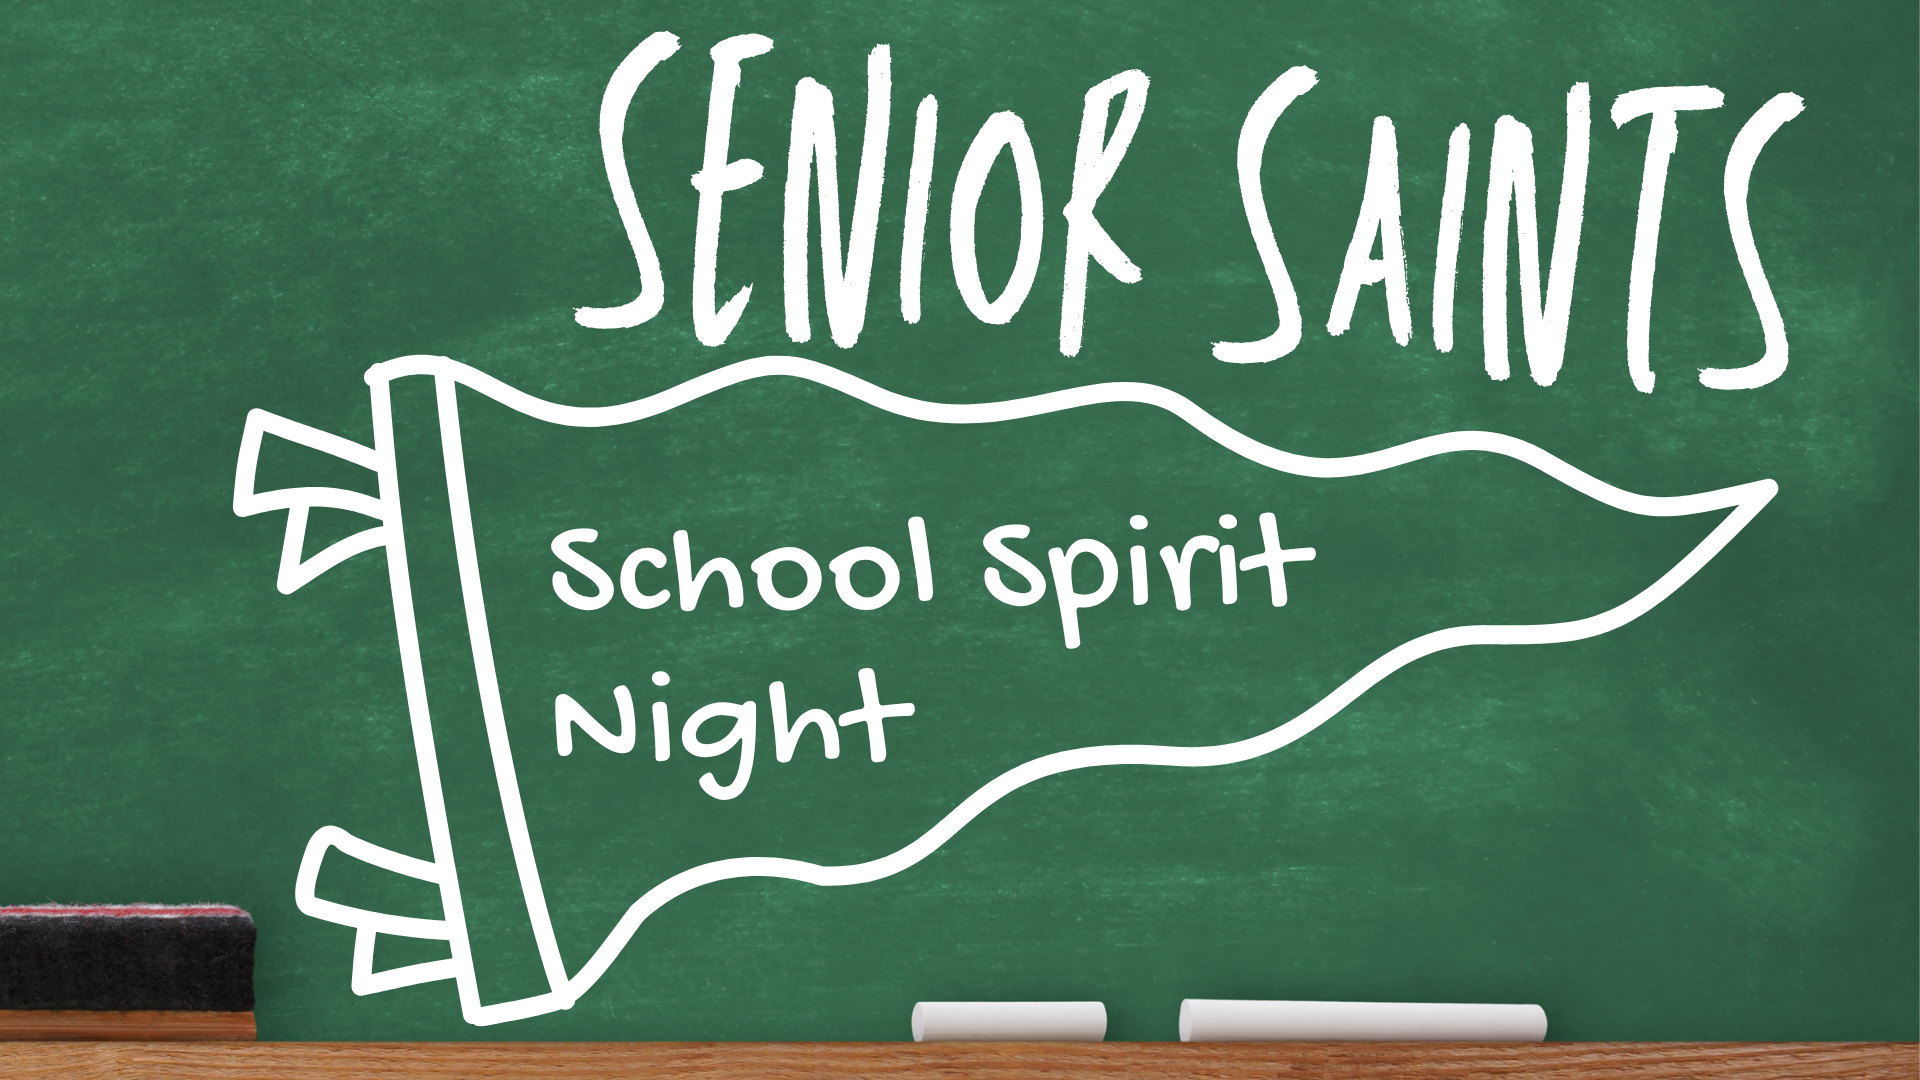 SENIOR SAINTS
School Spirit
Night